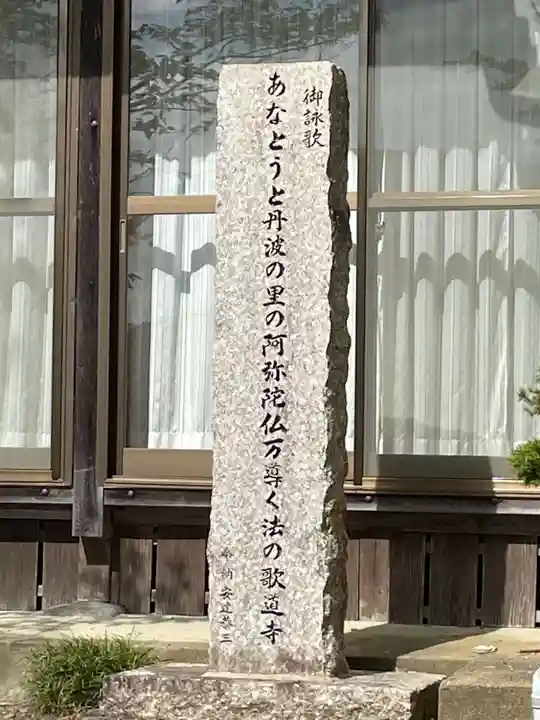 御詠歌
あなとうと丹波の里の阿弥陀仏万導く法の歌道寺
奉納 安達